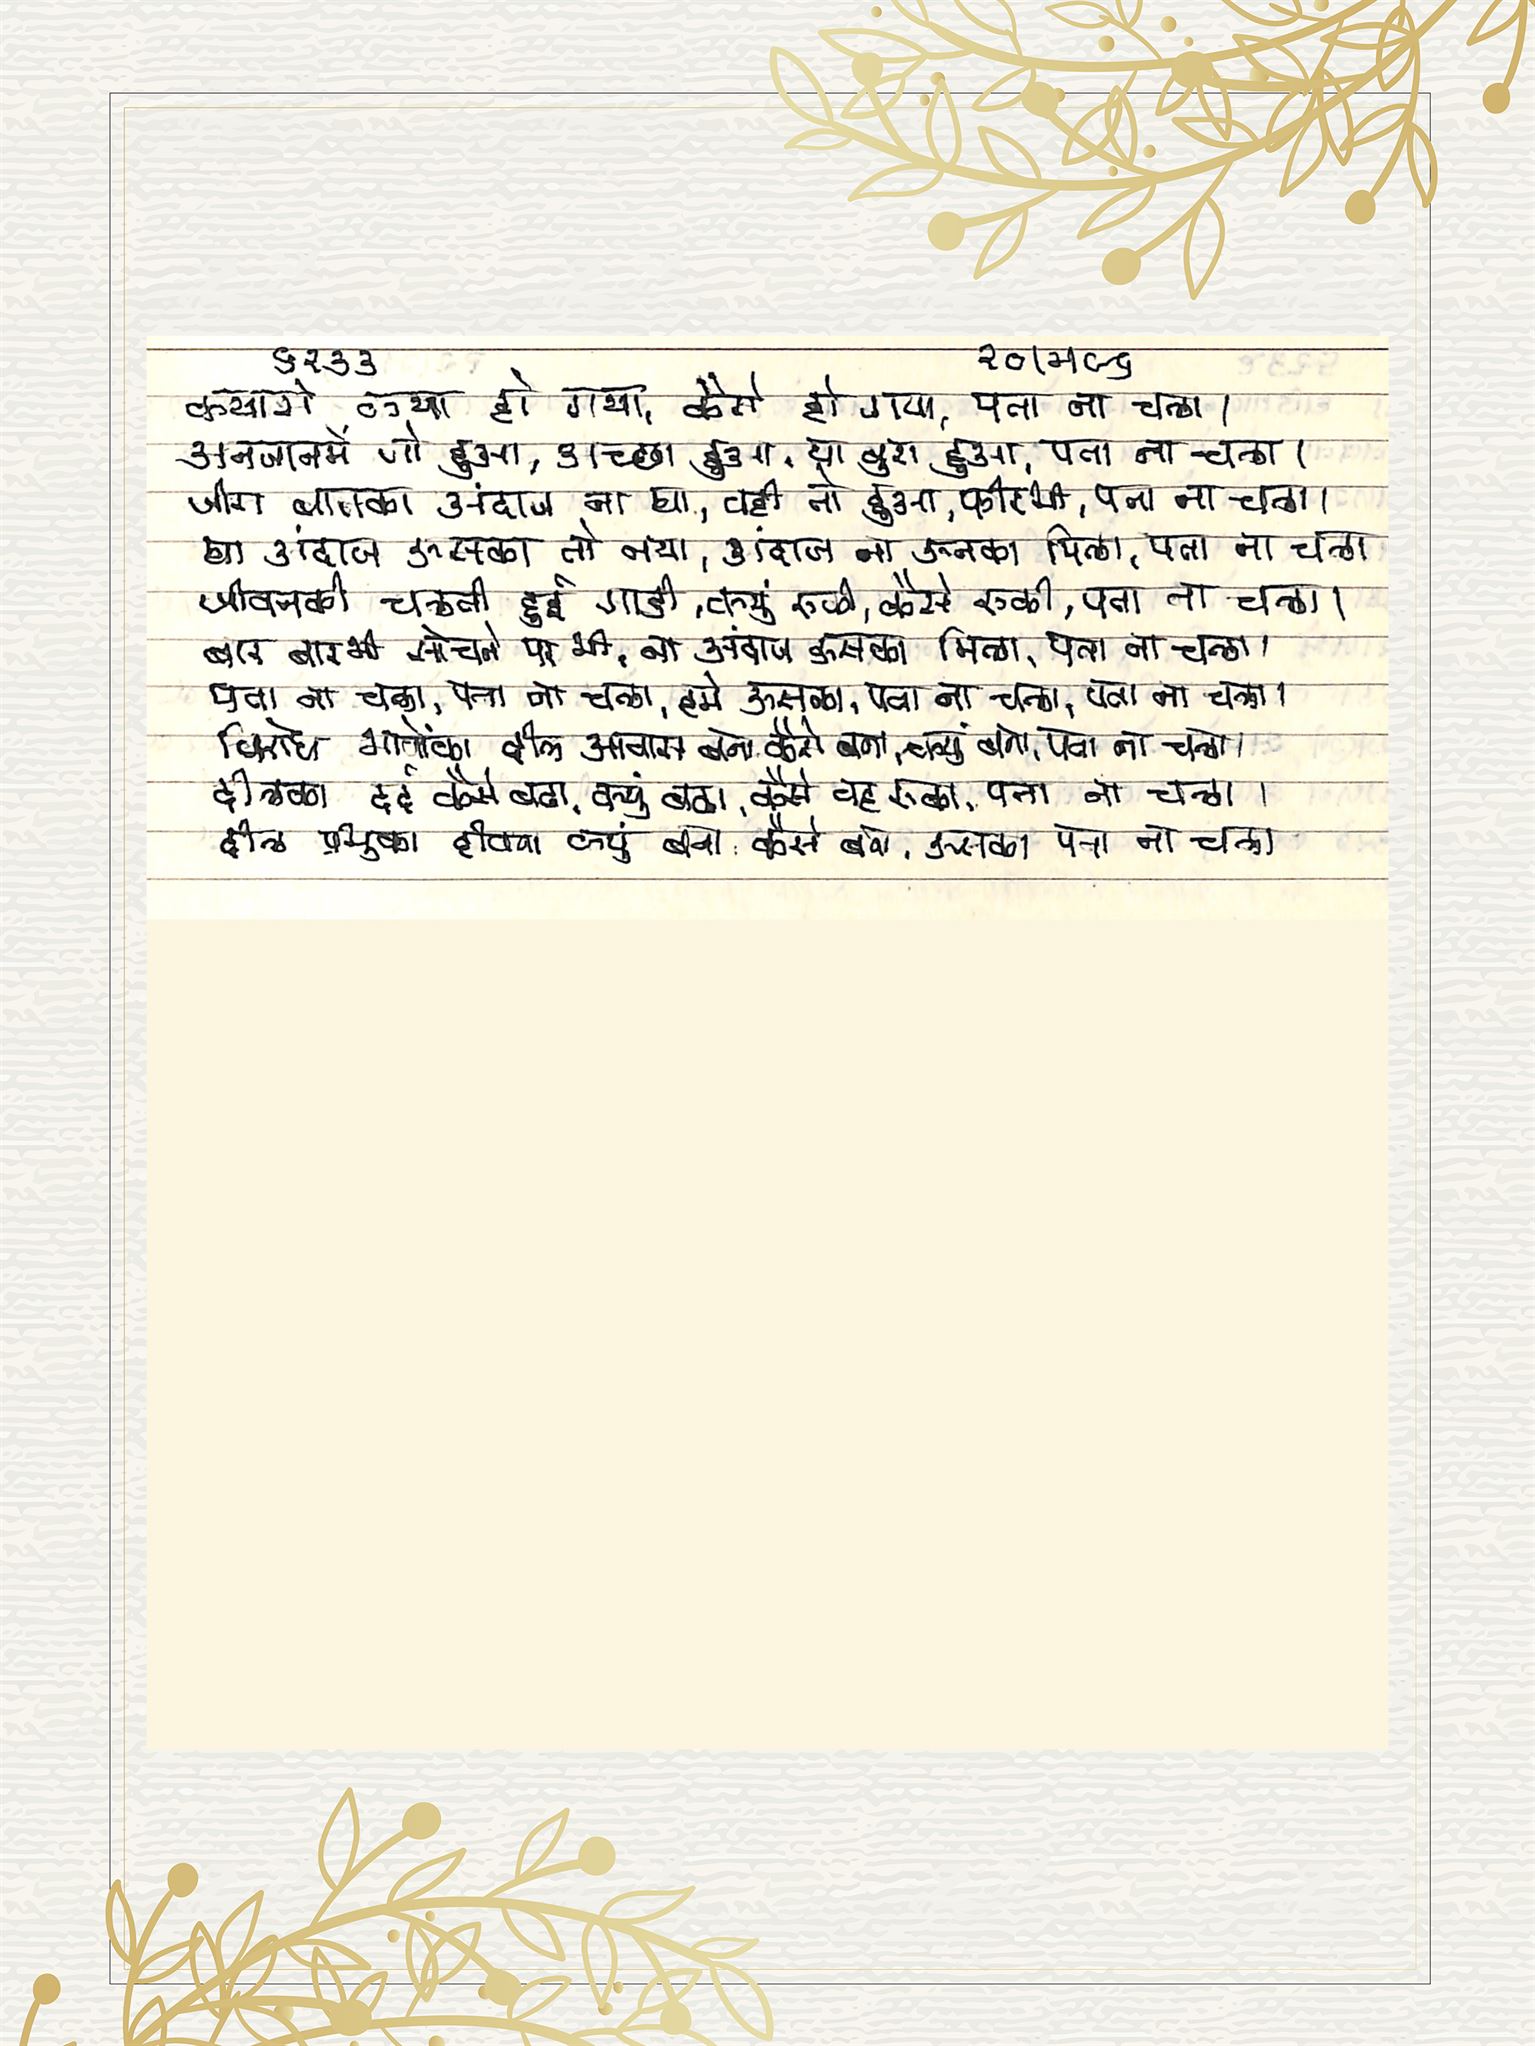 ६२३३ २०।म।८६
कयासे क्या हो गया, कैसे हो गया, पता ना चला।
अनजानमें जो हुआ, अच्छा हुआ, या बुरा हुआ, पता ना चला।
जीस बातका अंदाज ना था, वही तो हुआ, फीरभी, पता ना चला।
था अंदाज ऊसका तो नया, अंदाज ना ऊनका मिला, पता ना चला
जीवनकी चलती हुई गाडी, क्युं रुकी, कैसे रुकी, पता ना चला।
बार बारभी सोचने पर भी, ना अंदाज ऊसका मिला, पता ना चला।
पता ना चला, पता ना चला, हमे ऊसका, पता ना चला, पता ना चला।
विरोध भावोंका दील आवास बना कैसे बना, क्युं बना, पता ना चला।
दीलका दर्द कैसे बढा, क्युं बढा, कैसे वह रुका, पता ना चला।
दील प्रभुका दीवाना क्युं बना कैसे बना, ऊसका पता ना चला